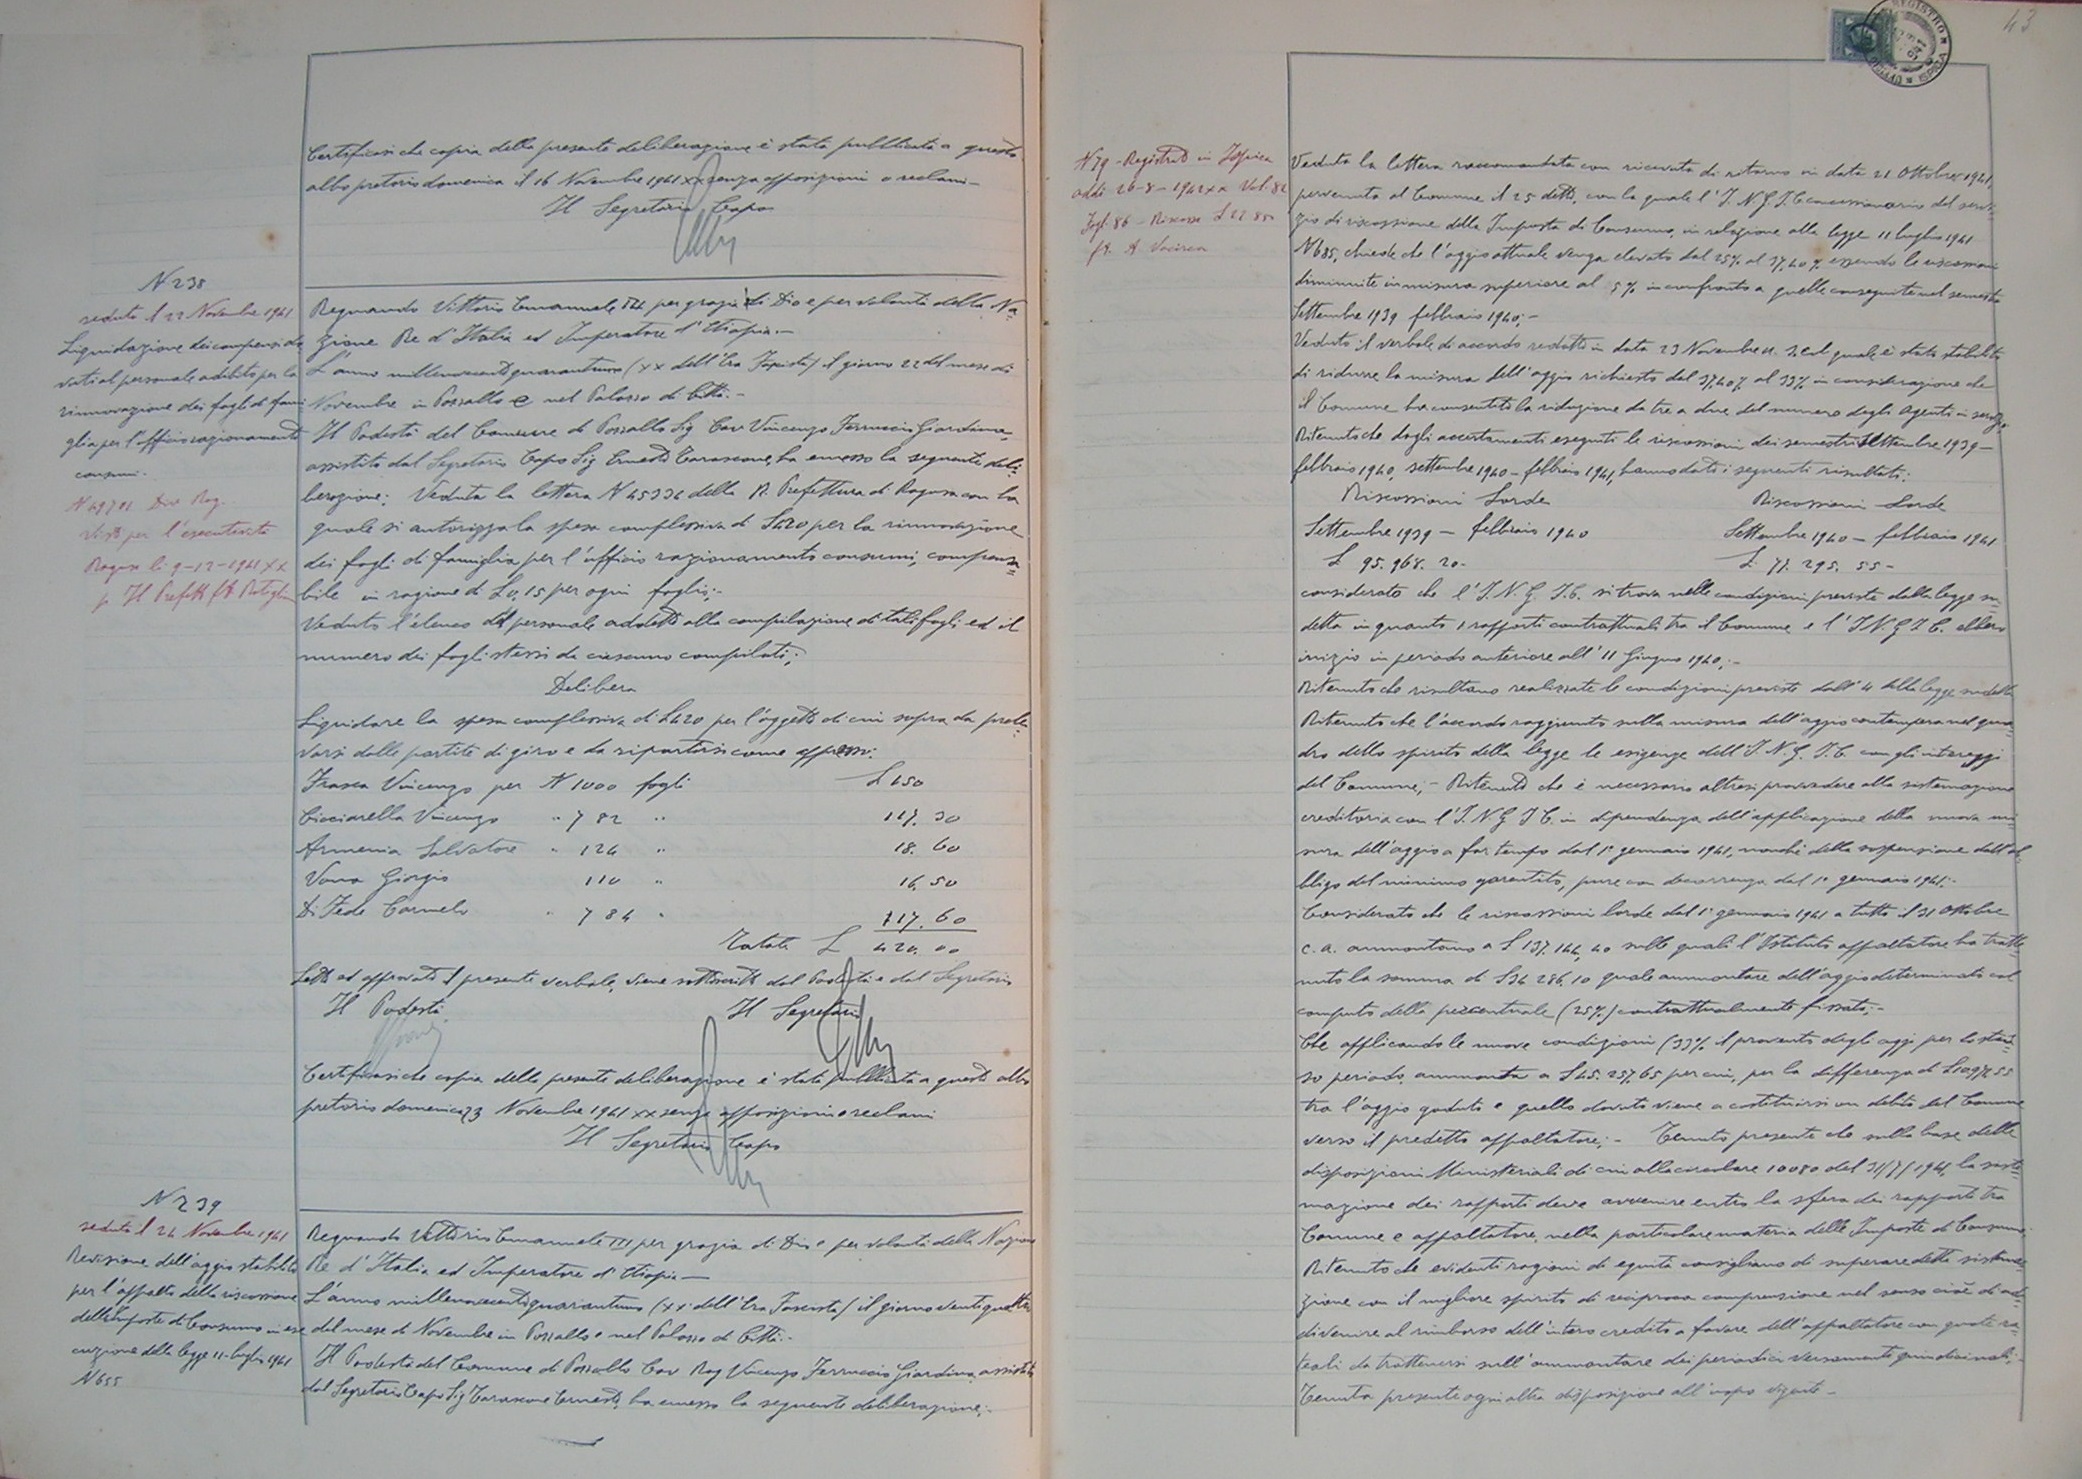 Certificasi che copia della presente deliberazione è stata pubblicata a questo
albo pretorio domenica il 16 Novembre 1941 XX senza opposizioni o reclami -
Il Segretario Capo
N 238
seduta d 22 Novembre 1941
Liquidazione dei compensi do
vuti al personale adibito per la
rinnovazione dei fogli di fami
glia per l'ufficio razionamento
consumi.
N 49701 Div Rag.
Visto per l'esecutività
Ragusa li 9-12-1941 XX
p Il Prefetto f.to
Regnando Vittorio Emanuele III per grazia di Dio e per volontà della Na=
zione Re d'Italia ed Imperatore d'Etiopia.-
L'anno millenovecentoquarantuno (XX dell'Era Fascista) il giorno 22 del mese di
Novembre in Pozzallo e nel Palazzo di Città.-
Il Podestà del Comune di Pozzallo Sig Cav Vincenzo Ferruccio Giardina,
assistito dal Segretario Capo Sig Ernesto Tarascone, ha emesso la seguente deli
berazione: Veduta la lettera N 45334 della R. Prefettura di Ragusa con la
quale si autorizza la spesa complessiva di L 420 per la rinnovazione
dei fogli di famiglia per l'ufficio razionamento consumi, compensa=
bile in ragione di L 0,15 per ogni foglio;-
Veduto l'elenco del personale addetto alla compilazione di tali fogli ed il
numero dei fogli stessi da ciascuno compilati;
Delibera
Liquidare la spesa complessiva di L 420 per l'oggetto di cui sopra da prele=
varsi dalle partite di giro e da ripartirsi come appresso:
Frasca Vincenzo per N 1000 fogli L 150
Cicciarella Vincenzo " 782 " 117. 30
Armenia Salvatore " 124 " 18. 60
Vona Giorgio 110 " 16. 50
Di Fede Carmelo " 784 " 117. 60
Totale L 420. 00
Letto ed approvato il presente verbale, viene sottoscritto dal Podestà e dal Segretario
Il Podestà Il Segretario
Certificasi che copia della presente deliberazione è stata pubblicata a questo albo
pretorio domenica 23 Novembre 1941 XX senza opposizioni o reclami
Il Segretario Capo
N 239
seduta d 24 Novembre 1941
Revisione dell'aggio stabilito
per l'appalto della riscossione
delle Imposte di Consumo in ese
cuzione della legge 11-luglio 1941
N 655
Regnando Vittorio Emanuele III per grazia di Dio e per volontà della Nazione
Re d'Italia ed Imperatore d'Etiopia -
L'anno millenovecentoquarantuno (XX dell'Era Fascista) il giorno ventiquattro
del mese di Novembre in Pozzallo e nel Palazzo di Città.-
Il Podestà del Comune di Pozzallo Cav Rag Vincenzo Ferruccio Giardina, assistito
dal Segretario Capo Sig Tarascone Ernesto, ha emesso la seguente deliberazione;-
43
N 79 - Registrato in Ispica
addì 26-8-1942 XX Vol. 82
Fogl. 86 - Riscosse L 22.85
f.to A
Veduta la lettera raccomandata con ricevuta di ritorno in data 21 Ottobre 1941,
pervenuta al Comune il 25 detto, con la quale l'I.N.G.I.C concessionario del servi=
zio di riscossione della Imposta di Consumo, in relazione alla legge 11 luglio 1941
N 685, chiede che l'aggio attuale venga elevato dal 25% al 37,40% essendo le riscossioni
diminuite in misura superiore al 5% in confronto a quelle conseguite nel semestre
Settembre 1939 febbraio 1940;-
Veduto il verbale di accordo redatto in data 23 Novembre u. s. col quale è stato stabilito
di ridurre la misura dell'aggio richiesto dal 37,40% al 33% in considerazione che
il Comune ha consentito la riduzione da tre a due del numero degli Agenti in servizio.
Ritenuto che dagli accertamenti eseguiti le riscossioni dei semestri Settembre 1939 -
febbraio 1940, settembre 1940 - febbraio 1941, hanno dato i seguenti risultati:
Riscossioni Lorde Riscossioni Lorde
Settembre 1939 - febbraio 1940 Settembre 1940 - febbraio 1941
L 95.968.20- L 77.295.55-
considerato che l'I.N.G.I.C. si trova nelle condizioni previste dalla legge su=
detta in quanto i rapporti contrattuali tra il Comune e l'I.N.G.I.C. ebbero
inizio in periodo anteriore all'11 Giugno 1940;-
Ritenuto che risultano realizzate le condizioni previste dall' 4 della legge sudetta
Ritenuto che l'accordo raggiunto sulla misura dell'aggio contempera nel qua=
dro dello spirito della legge le esigenze dell'I.N.G.I.C. con gli interessi
del Comune;- Ritenuto che è necessario altresì provvedere alla sistemazione
creditoria con l'I.N.G.I.C. in dipendenza dell'applicazione della nuova mi=
sura dell'aggio a far tempo dal 1° gennaio 1941, nonché della sospensione dell'ob=
bligo del minimo garantito, pure con decorrenza dal 1° gennaio 1941;-
Considerato che le riscossioni lorde dal 1° gennaio 1941 a tutto il 31 Ottobre
c.a. ammontano a L 137.144,40 sulle quali l'Istituto appaltatore ha tratte
nuto la somma di L 34 286,10 quale ammontare dell'aggio determinato col
computo della percentuale (25%) contrattualmente fissata;-
Che applicando le nuove condizioni (33% il provento degli aggi per lo stes=
so periodo, ammonta a L 45.257,65 per cui, per la differenza di L 10971 55
tra l'aggio goduto e quello dovuto viene a costituirsi un debito del Comune
verso il predetto appaltatore;- Tenuto presente che sulla base delle
disposizioni Ministeriali di cui alla circolare 10080 del 31/7/1941, la siste=
mazione dei rapporti deve avvenire entro la sfera dei rapporti tra
Comune e appaltatore, nella particolare materia delle Imposte di Consumo.
Ritenuto che evidenti ragioni di equità consigliano di superare detta situa
zione con il migliore spirito di reciproca comprensione nel senso cioè di ad=
divenire al rimborso dell'intero credito a favore dell'appaltatore con quote ra=
teali da trattenersi sull'ammontare dei periodici versamenti quindicinali;-
Tenuta presente ogni altra disposizione all'uopo vigente -